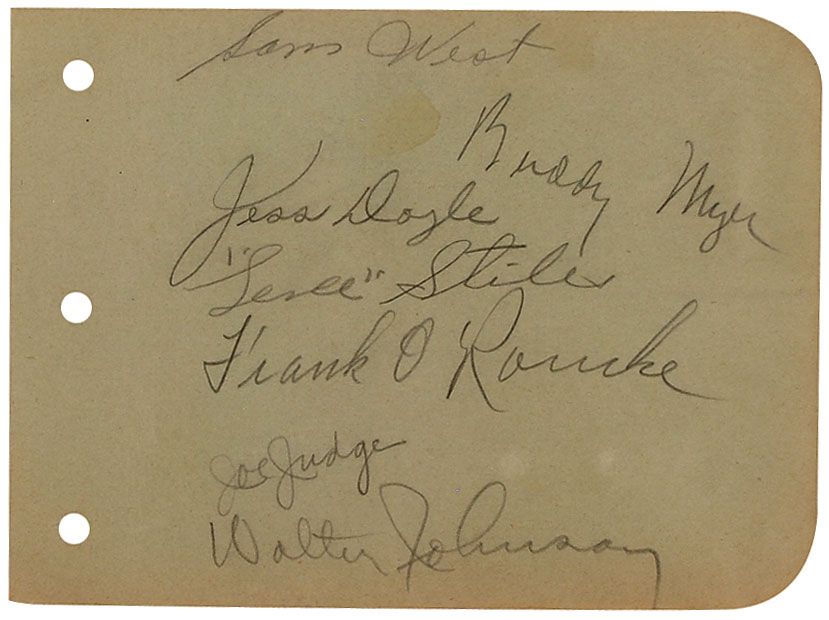 Sam West
Buddy Myer
Jess Doyle
Frank O Rourke
Joe Judge
Walter Johnson